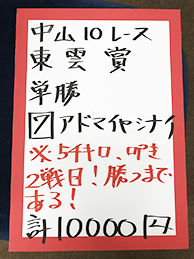 中山10レース
東雲賞
単勝
7アドマイヤシナイ
※54キロ、叩き
2戦目!勝つまで
ある!
計10000円